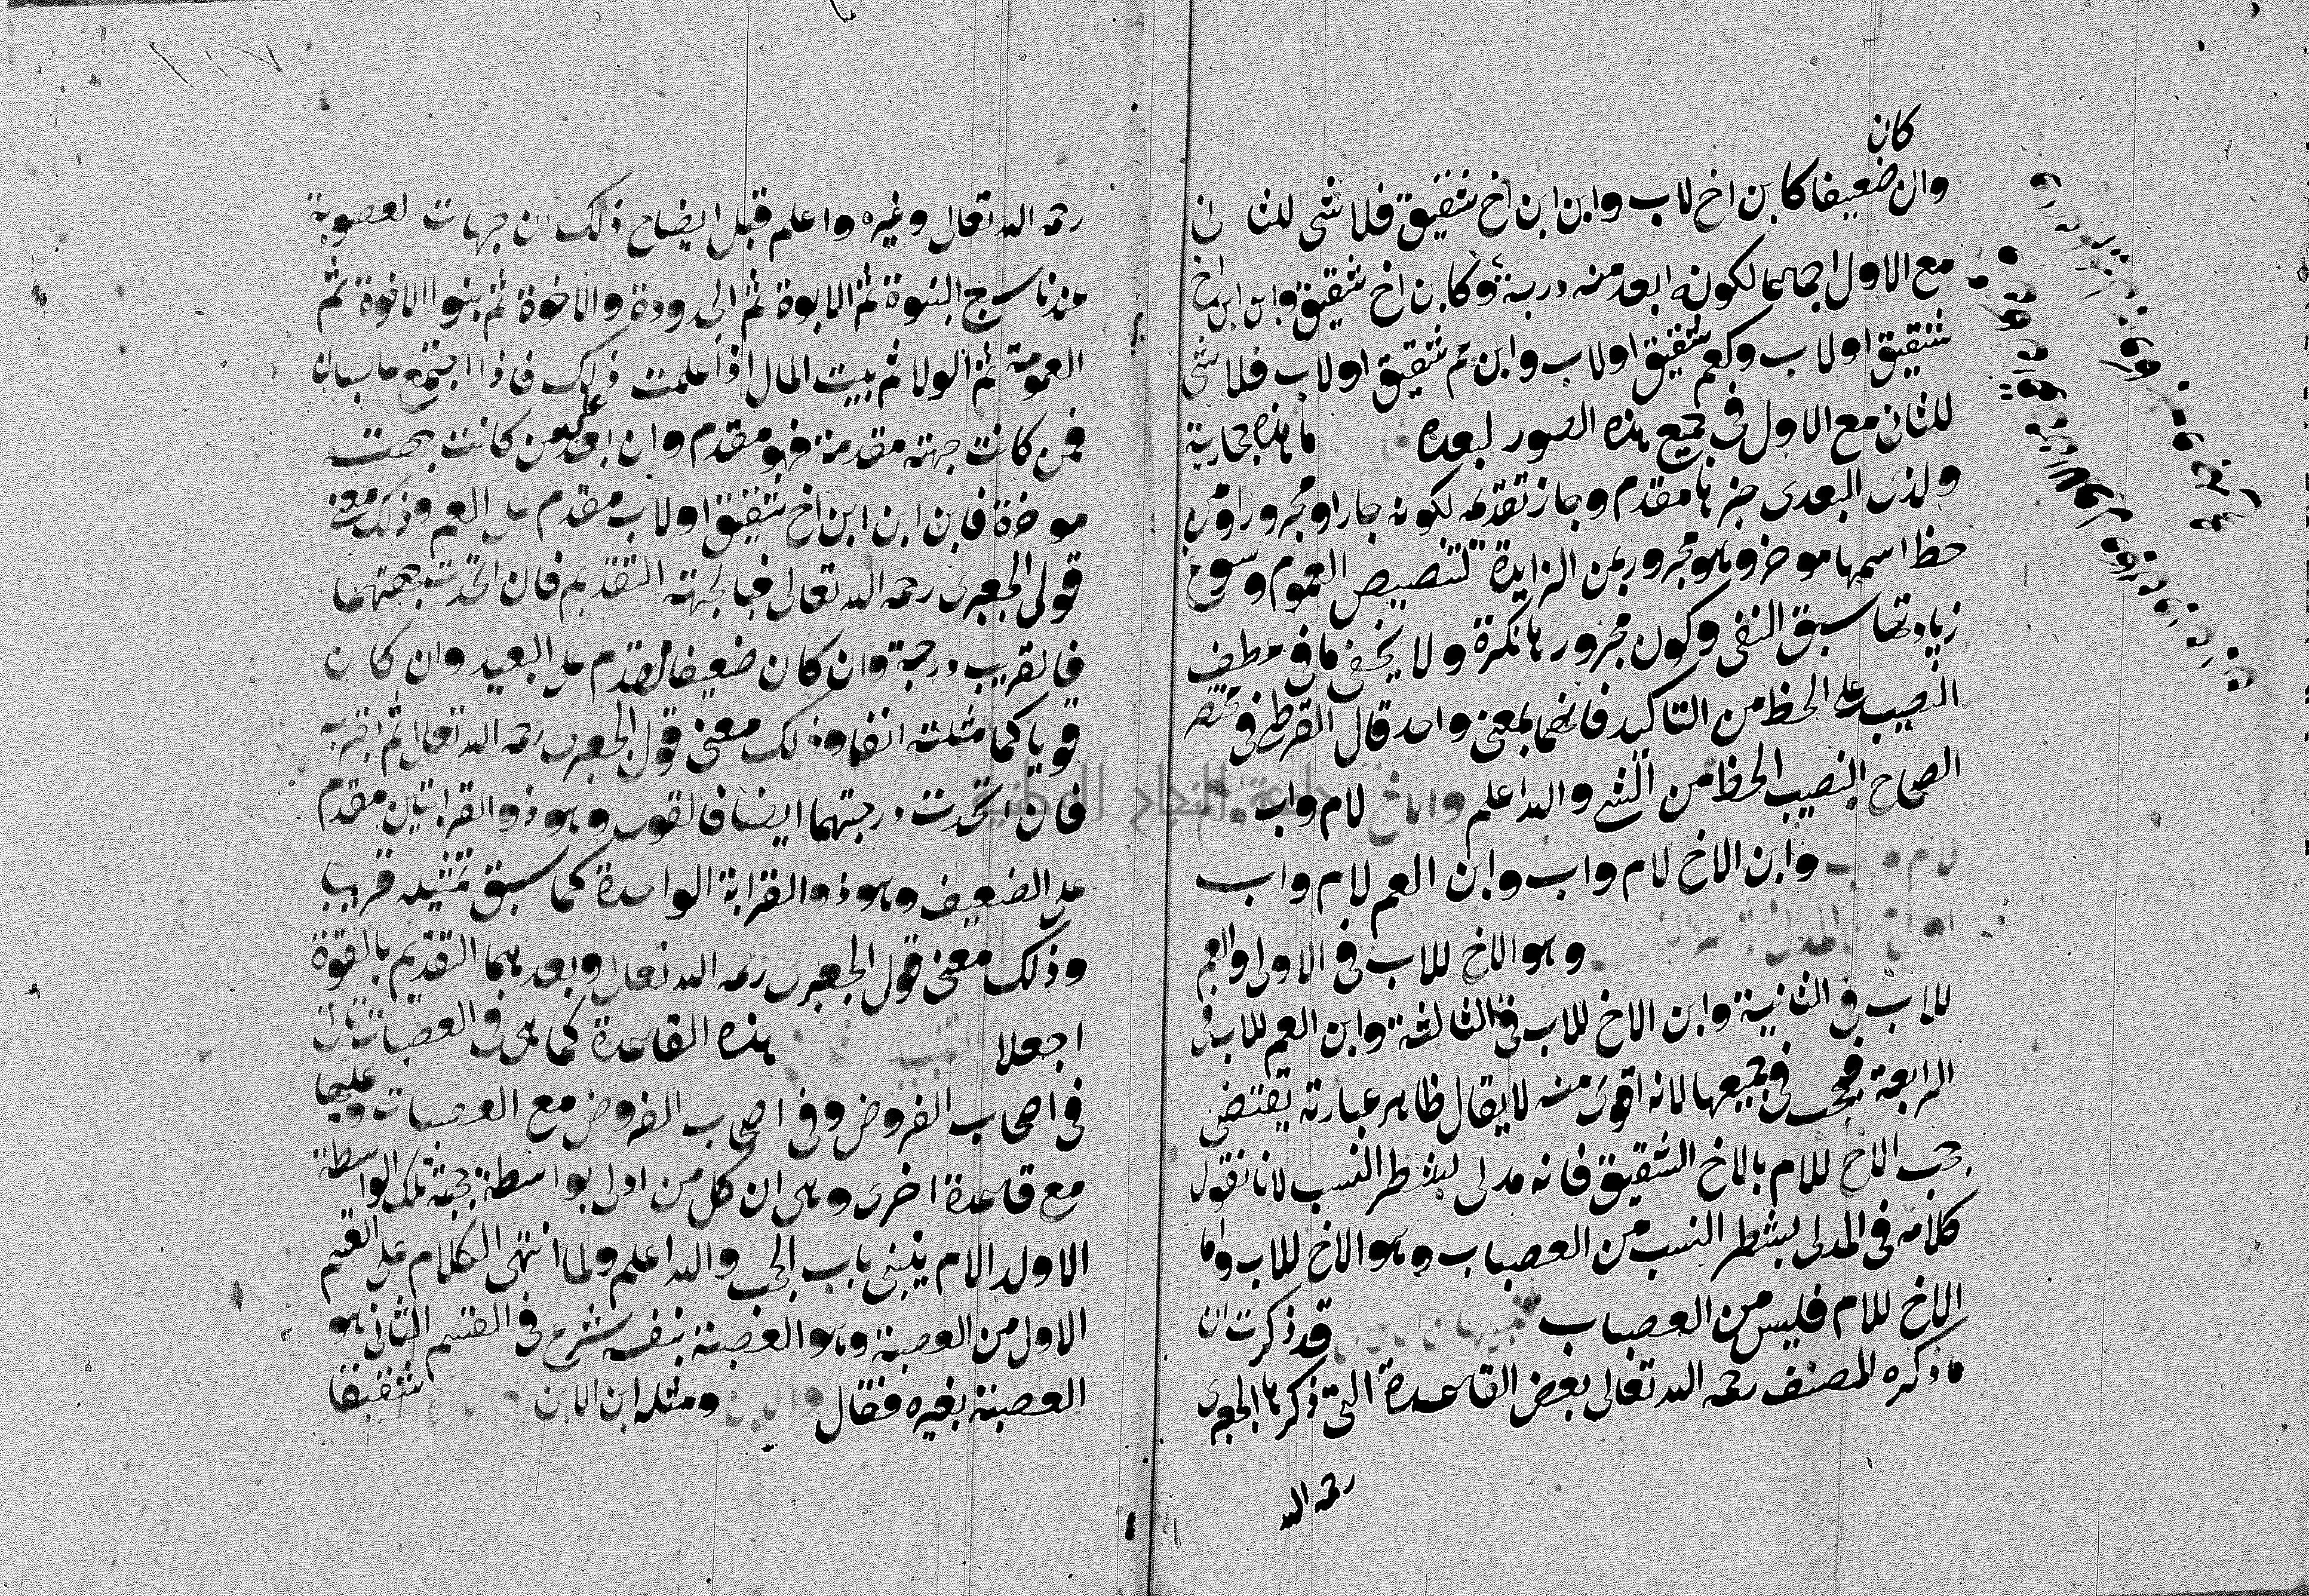 كان
وان ضعيفا كابن اخ لاب وابن ابن اخ شقيق فلا شى للثانى
مع الاول اجماعا لكونه ابعد منه درجة وكابن اخ شقيق وابن ابن اخ
شقيق اولاب وكعم شقيق اولاب وابن عم شقيق اولاب فلا شى
للثانى مع الاول فى جميع هذه الصور لبعده ما هذه حجازية
ولذى البعدى خبرها مقدم وجاز تقدمه لكونه جارا ومجرورا ومن
حظ اسمها موخر وهو مجرور بمن الزايدة لتنصيص العموم وسوغ
زيادتها سبق النفى وكون مجرورها نكرة ولا يخفى ما فى عطف
النصيب على الحظ من التاكيد فانهما بمعنى واحد قال القرطبى فى مختصر
الصحاح النصيب الحظ من الشى والله اعلم والاخ لام واب
وابن الاخ لام واب وابن العم لام واب
وهو الاخ للاب فى الاولى والعم
للاب فى الثانية وابن الاخ للاب فى الثالثة وابن العم للاب فى
الرابعة فيحجب فى جميعها لانه اقوى منه لا يقال ظاهر عبارته يقتضى
حجب الاخ للام بالاخ الشقيق فانه مدلى بشطر النسب لانا نقول
كلامه فى المدلى بشطر النسب من العصبات وهو الاخ للاب واما
الاخ للام فليس من العصبات قد ذكرت ان
ما ذكره المصنف رحمه الله تعالى بعض القاعدة التى ذكرها الجعبرى
رحمه الله
رحمه الله تعالى وغيره واعلم قبل ايضاح ذلك ان جهات العصوبة
عندنا سبع البنوة ثم الابوة ثم الجدودة والاخوة ثم بنوا الاخوة ثم
العمومة ثم الولا ثم بيت المال اذا علمت ذلك فاذا اجتمع عاصبان
فمن كانت جهته مقدمة فهو مقدم وان بعد على من كانت جهته
موخرة فابن ابن ابن اخ شقيق اولاب مقدم على العم وذلك معنى
قول الجعبرى رحمه الله تعالى فبالجهة التقديم فان اتحدت جهتهما
فالقريب درجة وان كان ضعيفا مقدم على البعيد وان كان
قويا كما مثلته انفا وذلك معنى قول الجعبرى رحمه الله تعالى ثم بقربه
فان اتحدت درجتهما ايضا فالقوى وهو ذو القرابتين مقدم
على الضعيف وهو ذو القرابة الواحدة كما سبق تمثيله قريبا
وذلك معنى قول الجعبرى رحمه الله تعالى وبعدهما التقديم بالقوة
اجعلا هذه القاعدة كما هى فى العصبات تاتى
فى اصحاب الفروض وفى اصحاب الفروض مع العصبات وعليها
مع قاعدة اخرى وهى ان كل من ادلى بواسطة حجبته تلك الواسطة
الا ولد الام ينبنى باب الحجب والله اعلم ولما انتهى الكلام على القسم
الاول من العصبة وهو العصبة بنفسه شرع فى القسم الثانى وهو
العصبة بغيره فقال ومثله ابن الابن شقيقا